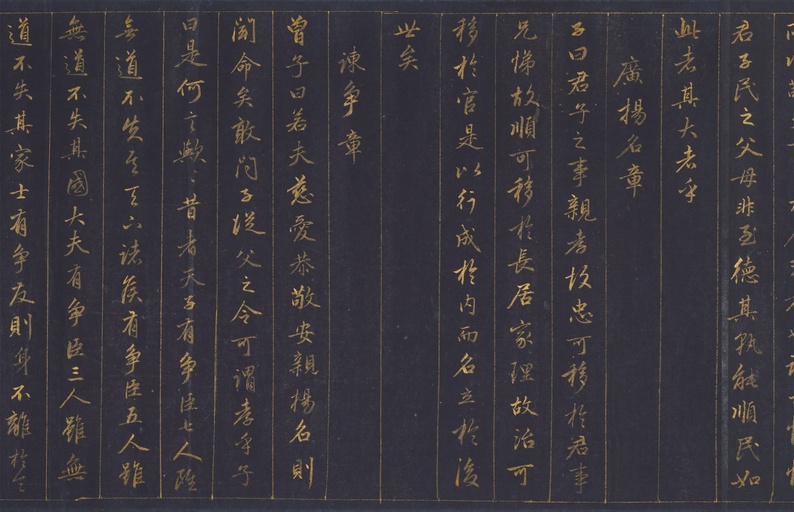 君子民之父母非至德其孰能順民如
此者其大者乎
廣揚名章
子曰君子之事親孝故忠可移於君事
兄悌故順可移於長居家理故治可
移於官是以行成於内而名立於後
世矣
諫争章
曾子曰若夫慈愛恭敬安親揚名則
聞命矣敢問子從父之令可謂孝乎子
曰是何言歟〻昔者天子有争臣七人雖
無道不失其天下諸侯有争臣五人雖
無道不失其國大夫有争臣三人雖無
道不失其家士有争友則身不離於令